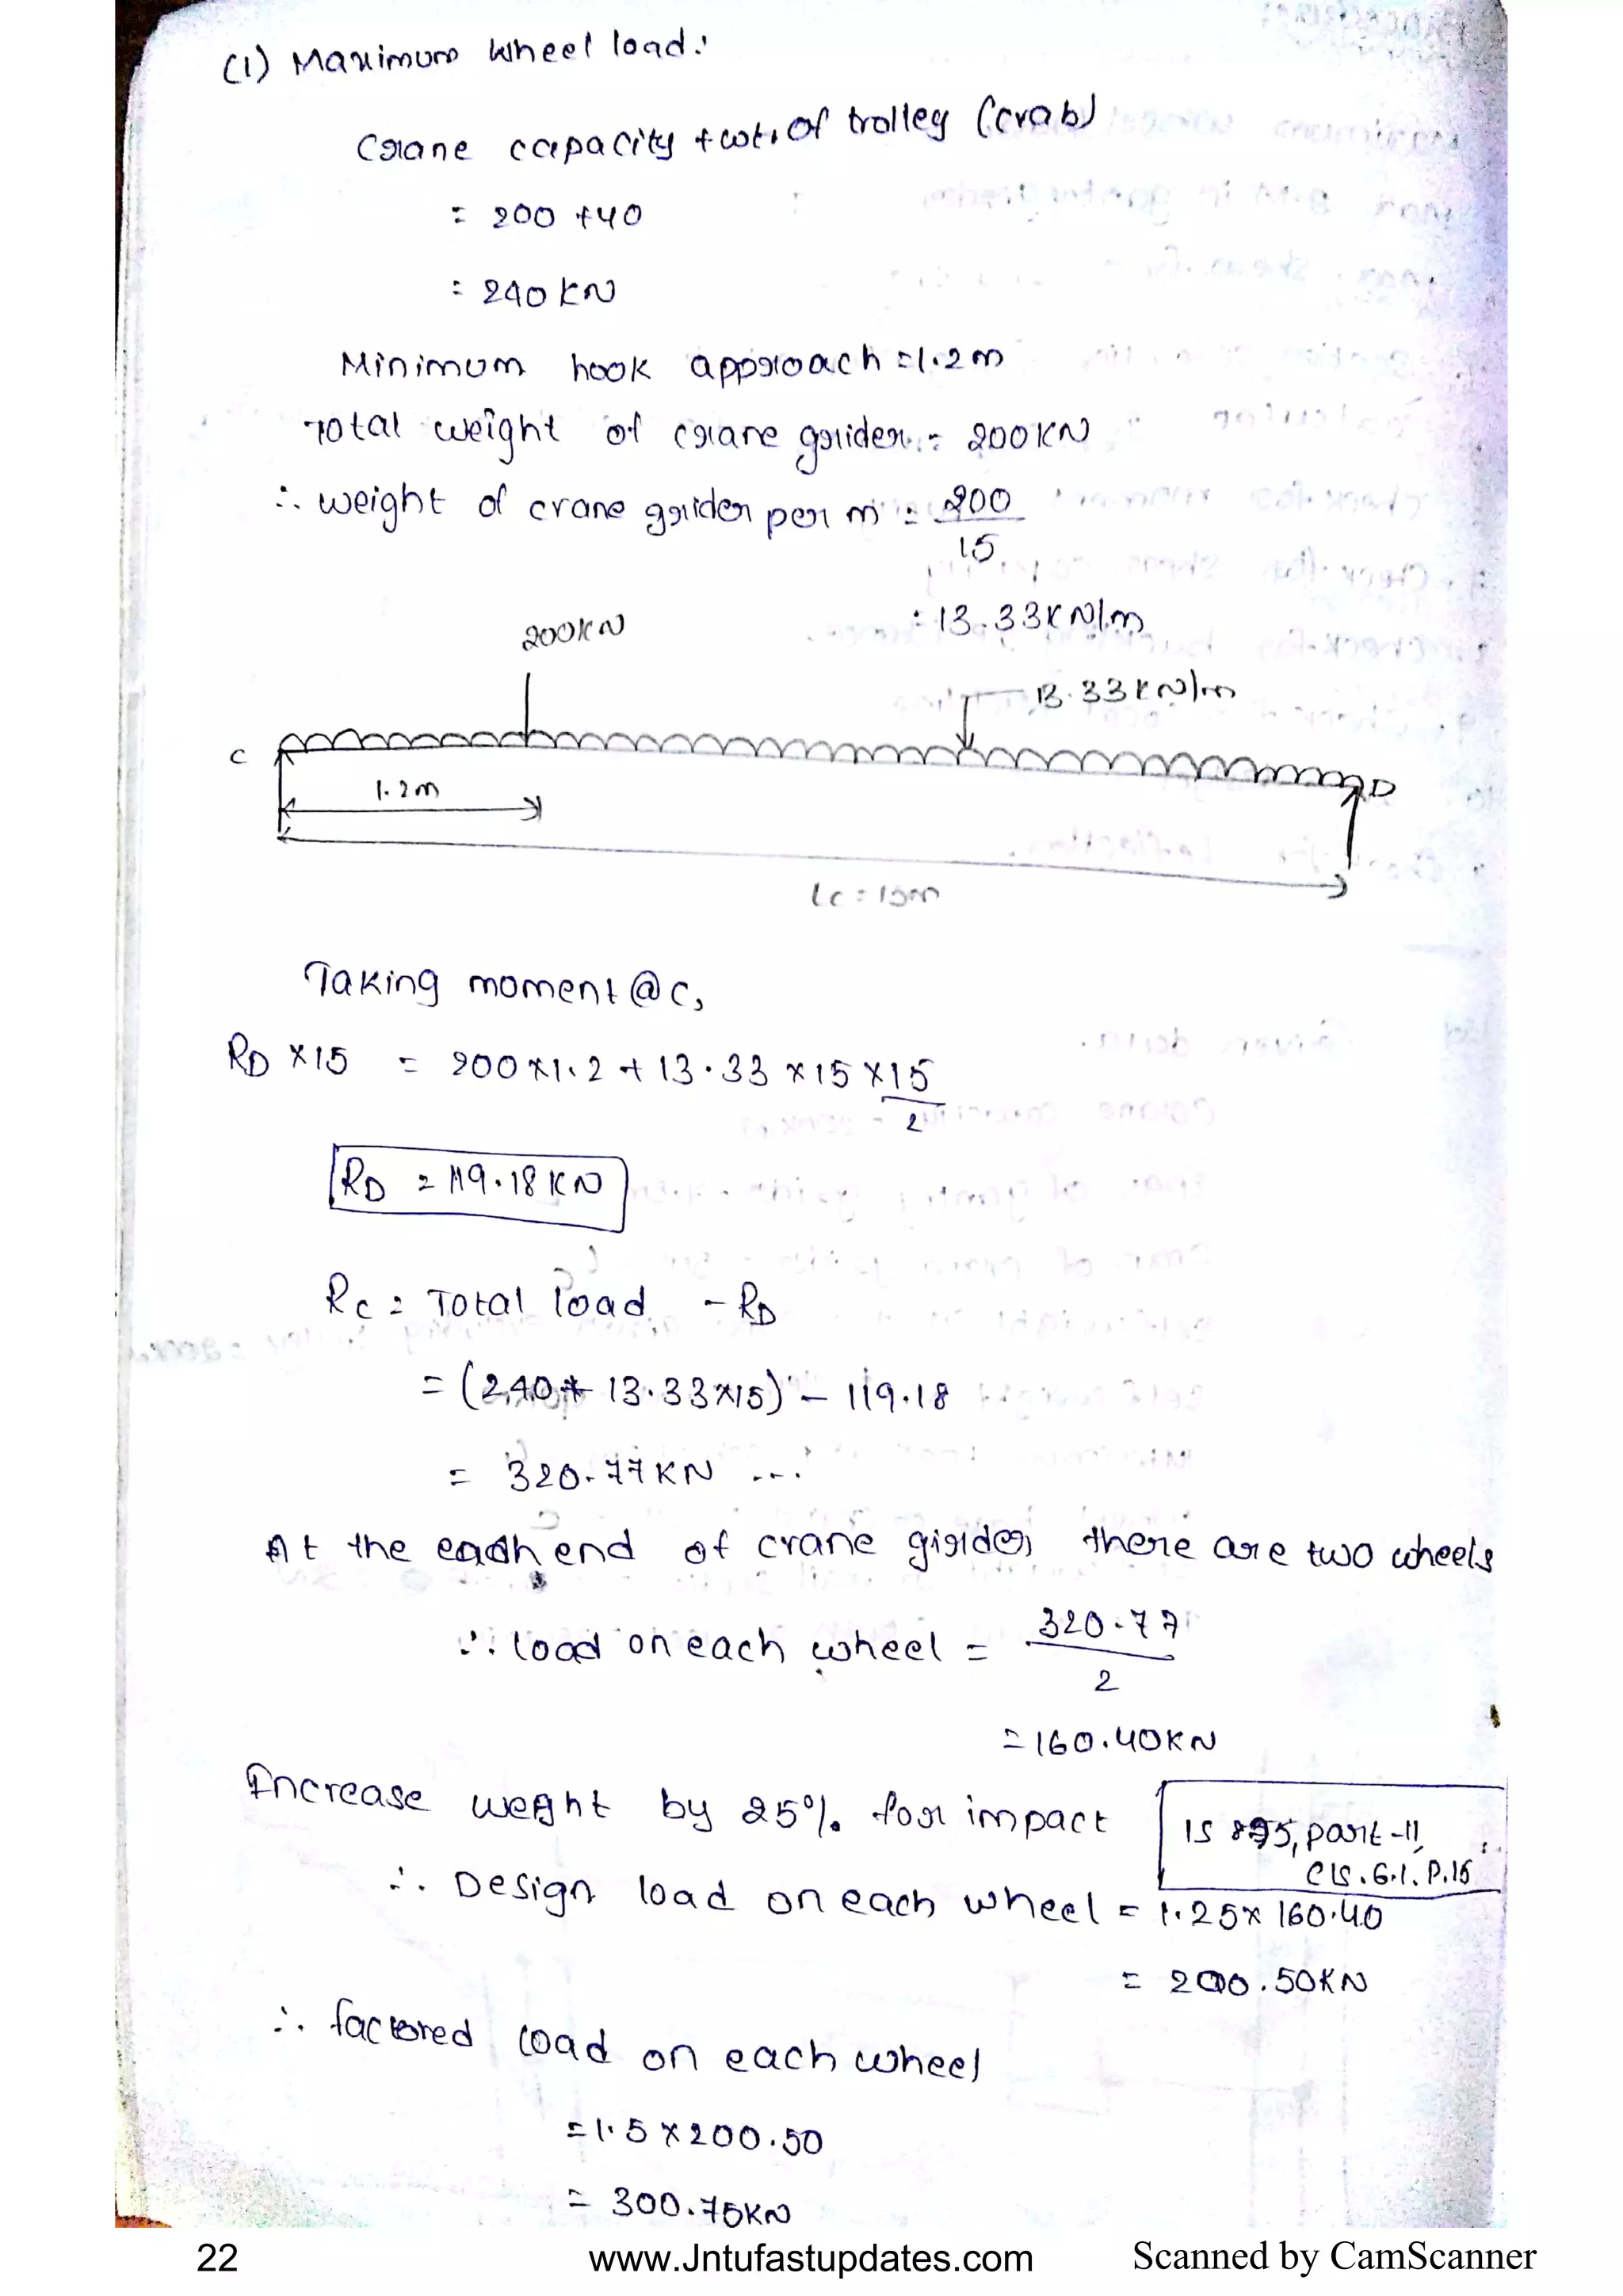 (1) Maximum wheel load:
Crane capacity + wt. of trolley (crab)
= 200 + 40
= 240 KN
Minimum hook approach = 1.2 m
Total weight of crane grider = 200 KN
∴ weight of crane grider per m = 200/15
= 13.33 KN/m
200KN
13.33 KN/m
C
D
1.2m
lc = 15m
Taking moment @ C,
RD × 15 = 200 × 1.2 + 13.33 × 15 × 15/2
RD = 119.18 KN
Rc = Total load - RD
= (240 + 13.33×15) - 119.18
= 320.77 KN ...
At the each end of crane girder there are two wheels
∴ load on each wheel = 320.77/2
= 160.40 KN
Increase weght by 25% for impact
IS 875, part-II,
Cls. 6.1. P.15
∴ Design load on each wheel = 1.25 × 160.40
= 200.50 KN
∴ factored load on each wheel
= 1.5 × 200.50
= 300.75 KN
22
www.Jntufastupdates.com
Scanned by CamScanner